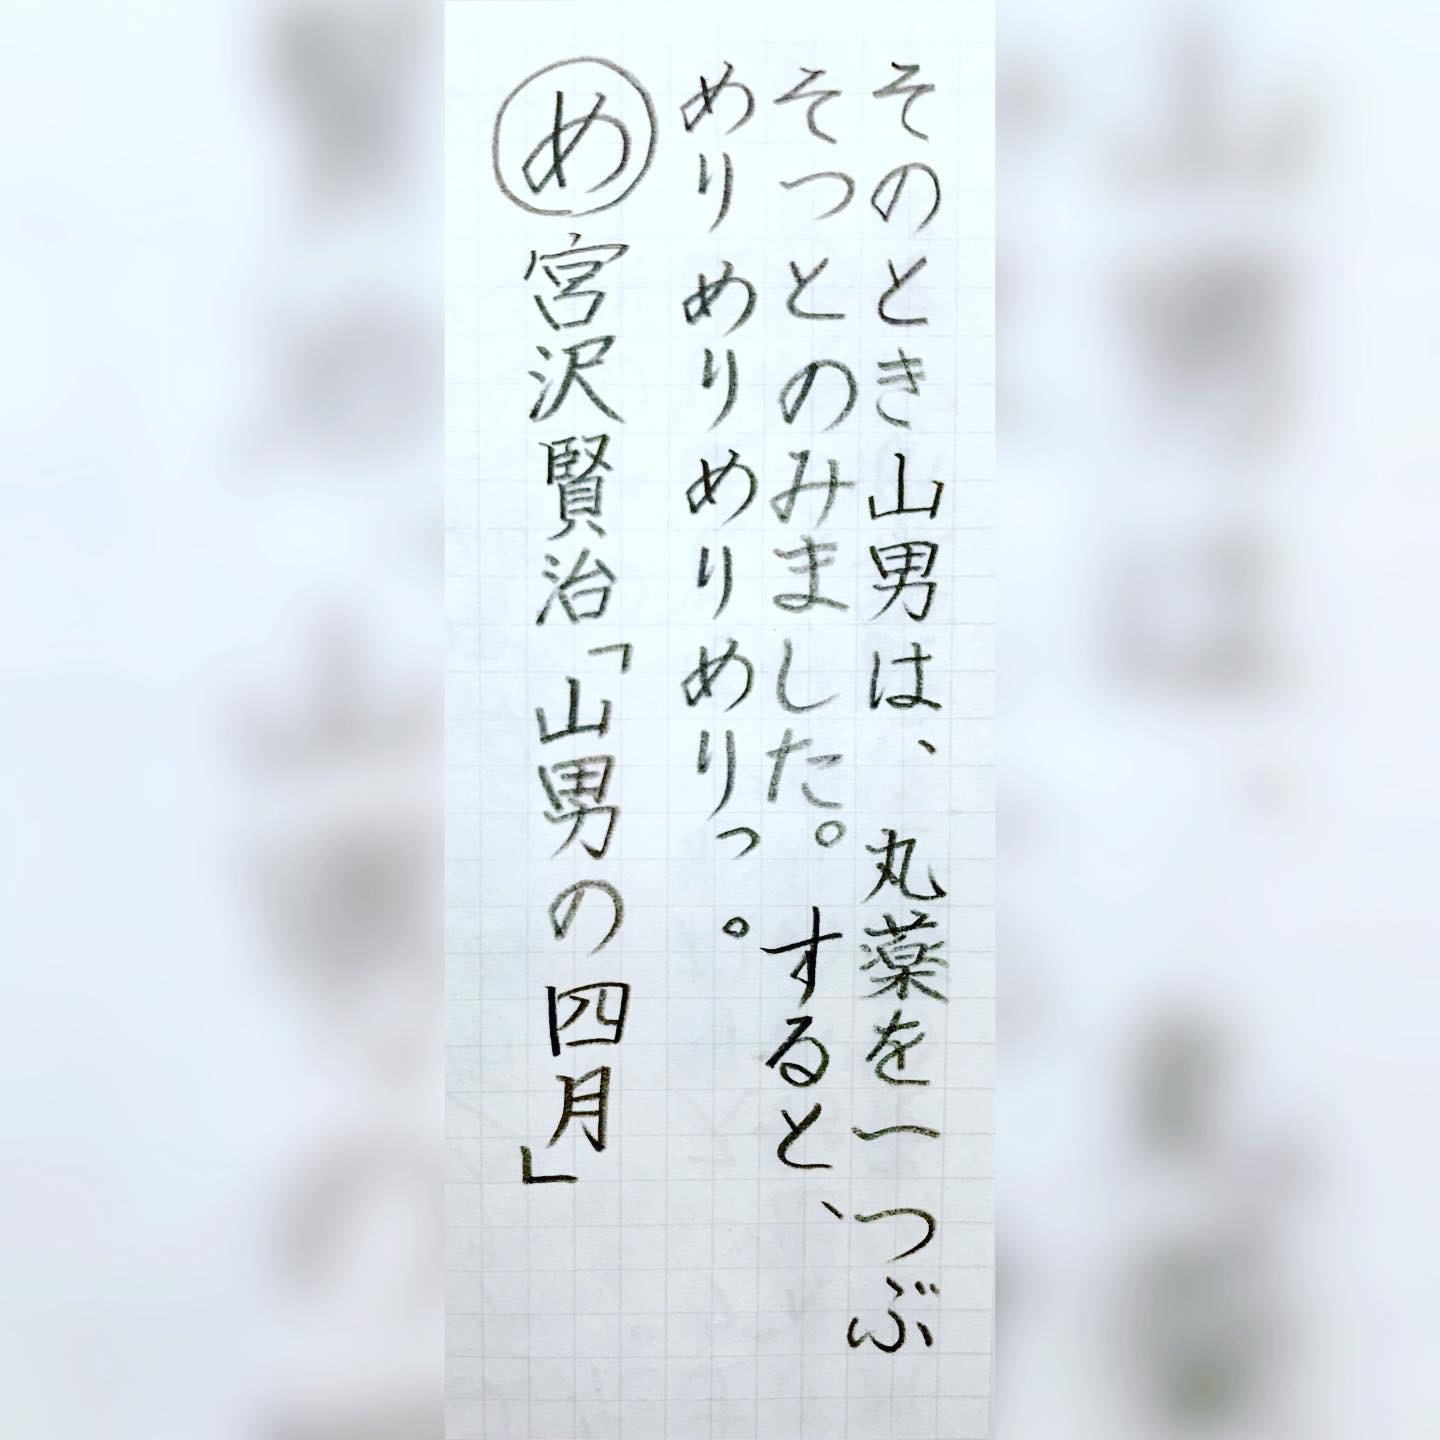 そのとき山男は、丸薬を一つぶ
そつとのみました。すると、
めりめりめりめりっ。
め 宮沢賢治「山男の四月」